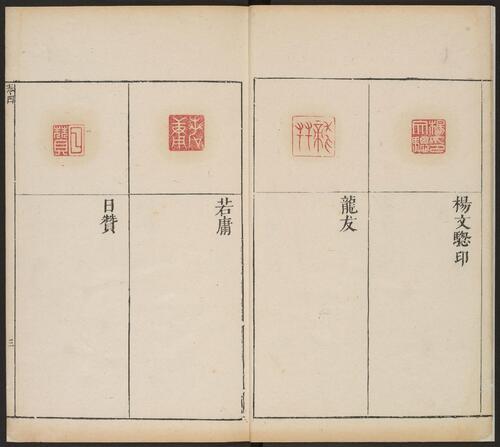 楊文驄印
龍友
若庸
日贊
三